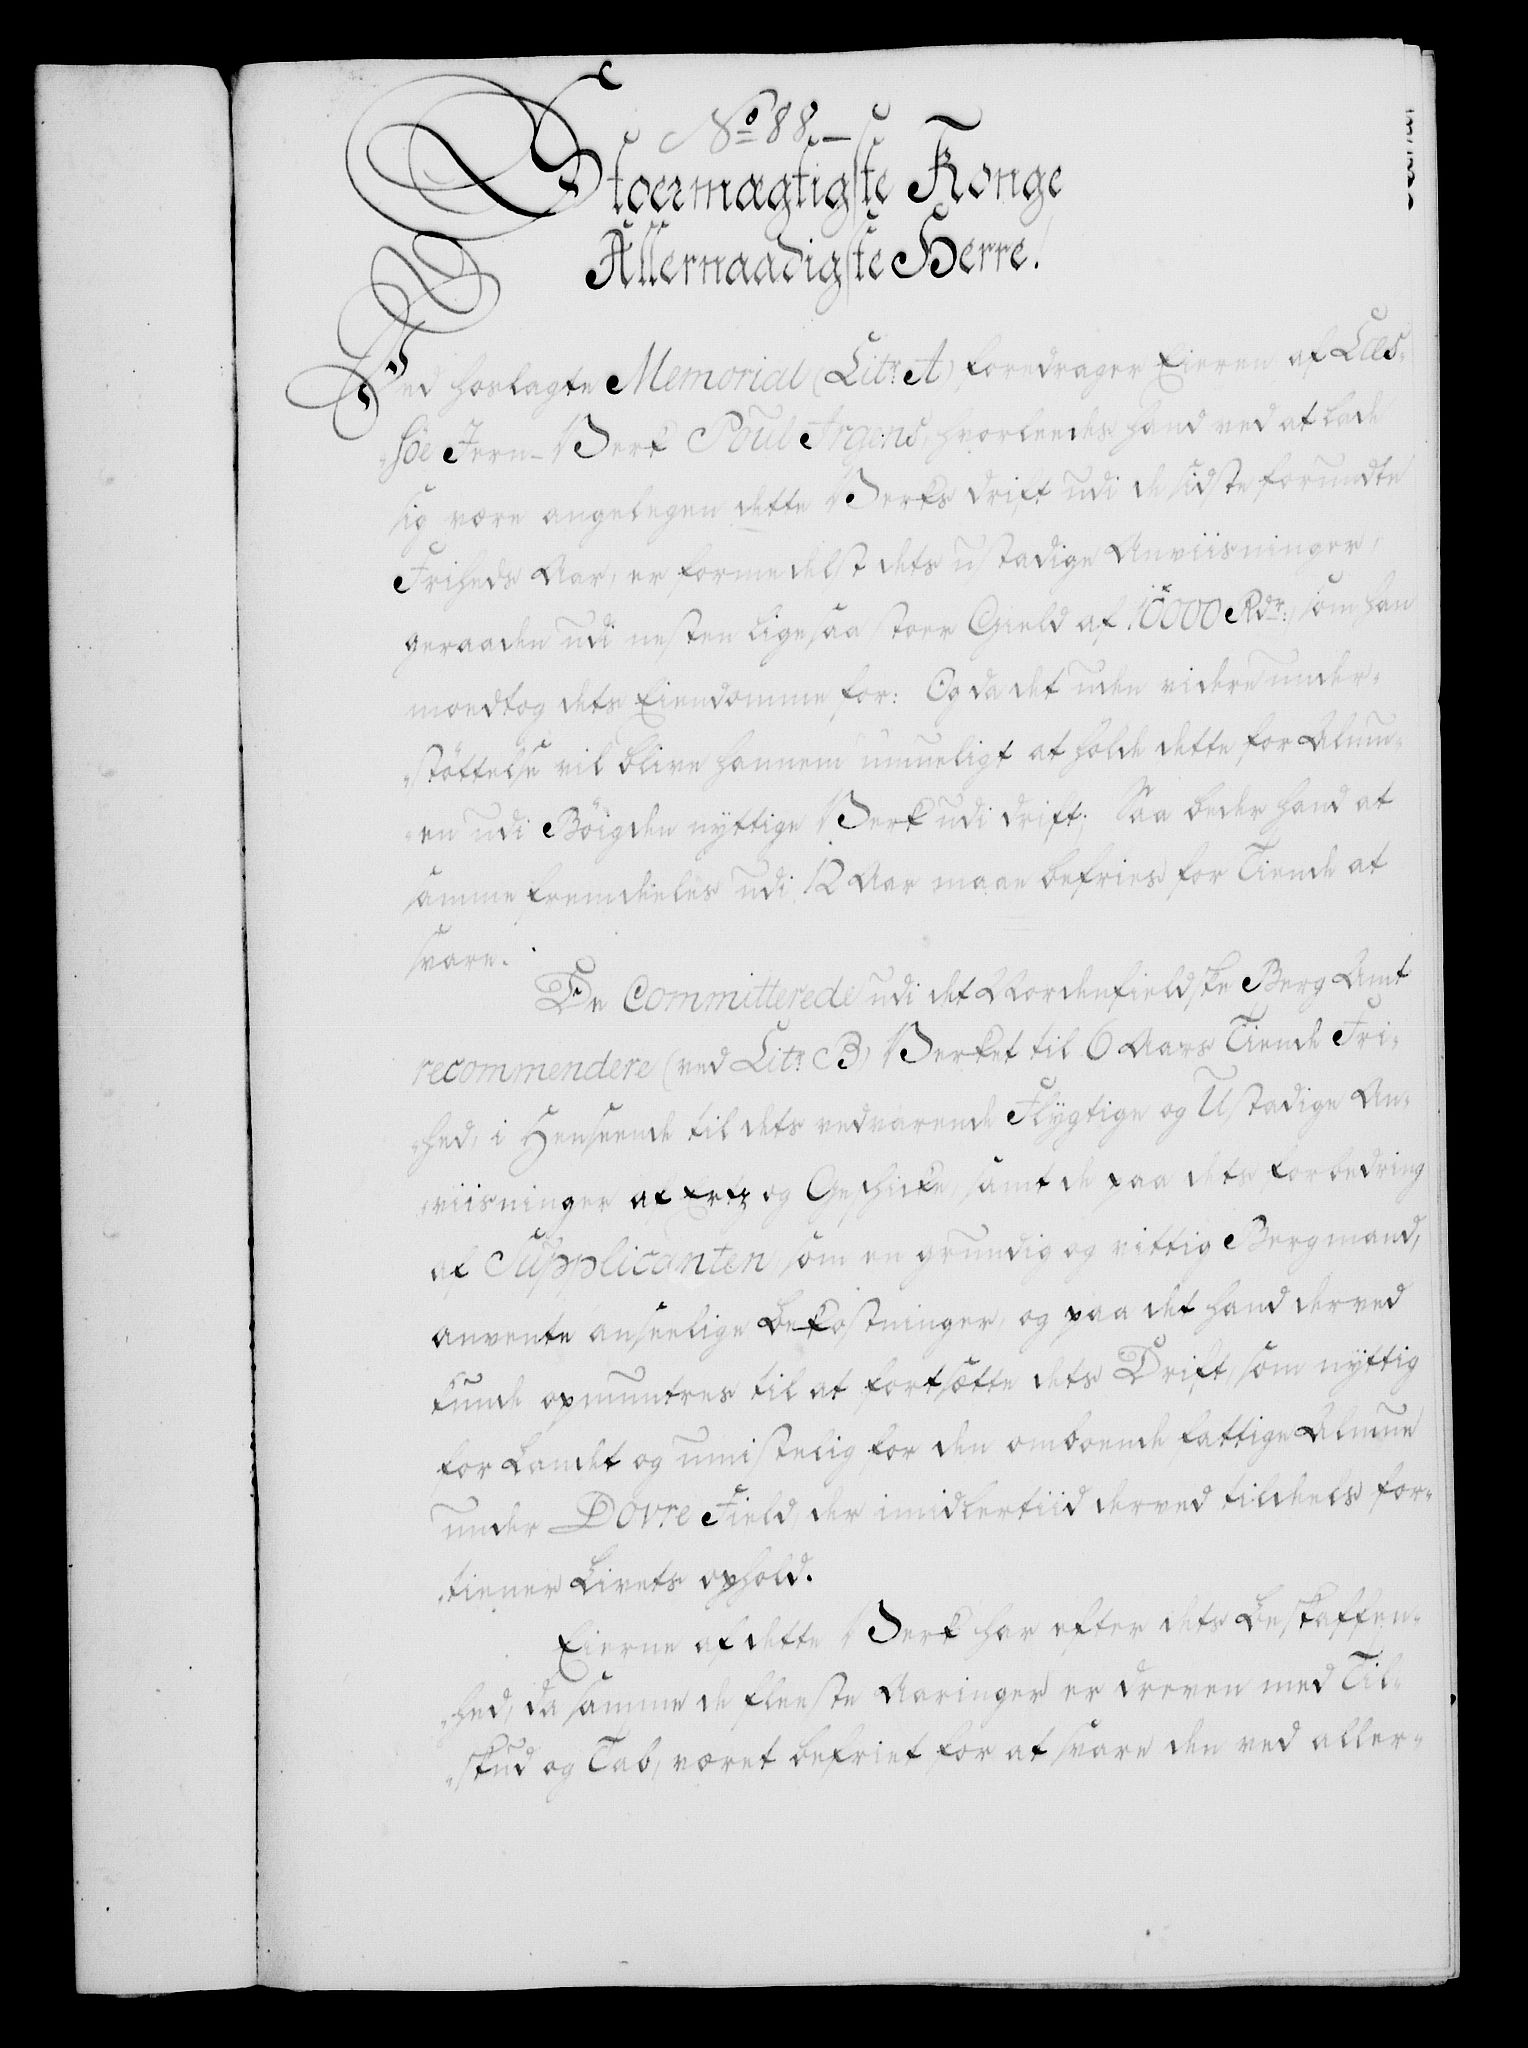 No 88.
Stoermægtigste Konge
Allernaadigste Herre!
Ved hoslagte Memorial (Litr: A) foredrager Eieren af Læs-
söe Jern-Verk Poul Irgens, hvorleedes hand ved at lade
sig være angelegen dette Verks drift udi de sidste forundte
Friheds Aar, er formedelst dets ustadige Anviisninger,
geraaden udi nesten ligesaa stoer Gield af 10000 Rdr:, som han
modtog dets Eiendomme for: Og da det uden videre under-
støttelse vil blive hannem umueligt at holde dette for Almu-
en udi Böigden nyttige Verk udi drift; Saa beder hand at
samme fremdeeles udi 12 Aar maae befries for Tiende at
svare.
De Committerede udi det Nordenfieldske Berg Amt
recommendere (ved Litr: B) Verket til 6 Aars Tiende Fri-
hed, i Henseende til dets vedvarende Flygtige og Ustadige An-
viisninger af Ertz og Geschicke, samt de paa dets forbedring
af Supplicanten, som en grundig og vittig Bergmand,
anvente anseelige Bekostninger, og paa det hand derved
kunde opmuntres til at fortsætte dets Drift, som nyttig
for Landet og umistelig for den omboende fattige Almue
under Dovre Field, der imidlertiid derved tildeels for-
tiener Livets ophold.
Eierne af dette Verk har efter dets Beskaffen-
hed, da samme de fleeste Aaringer er dreven med Til-
skud og Tab, været befriet for at svare den ved aller-